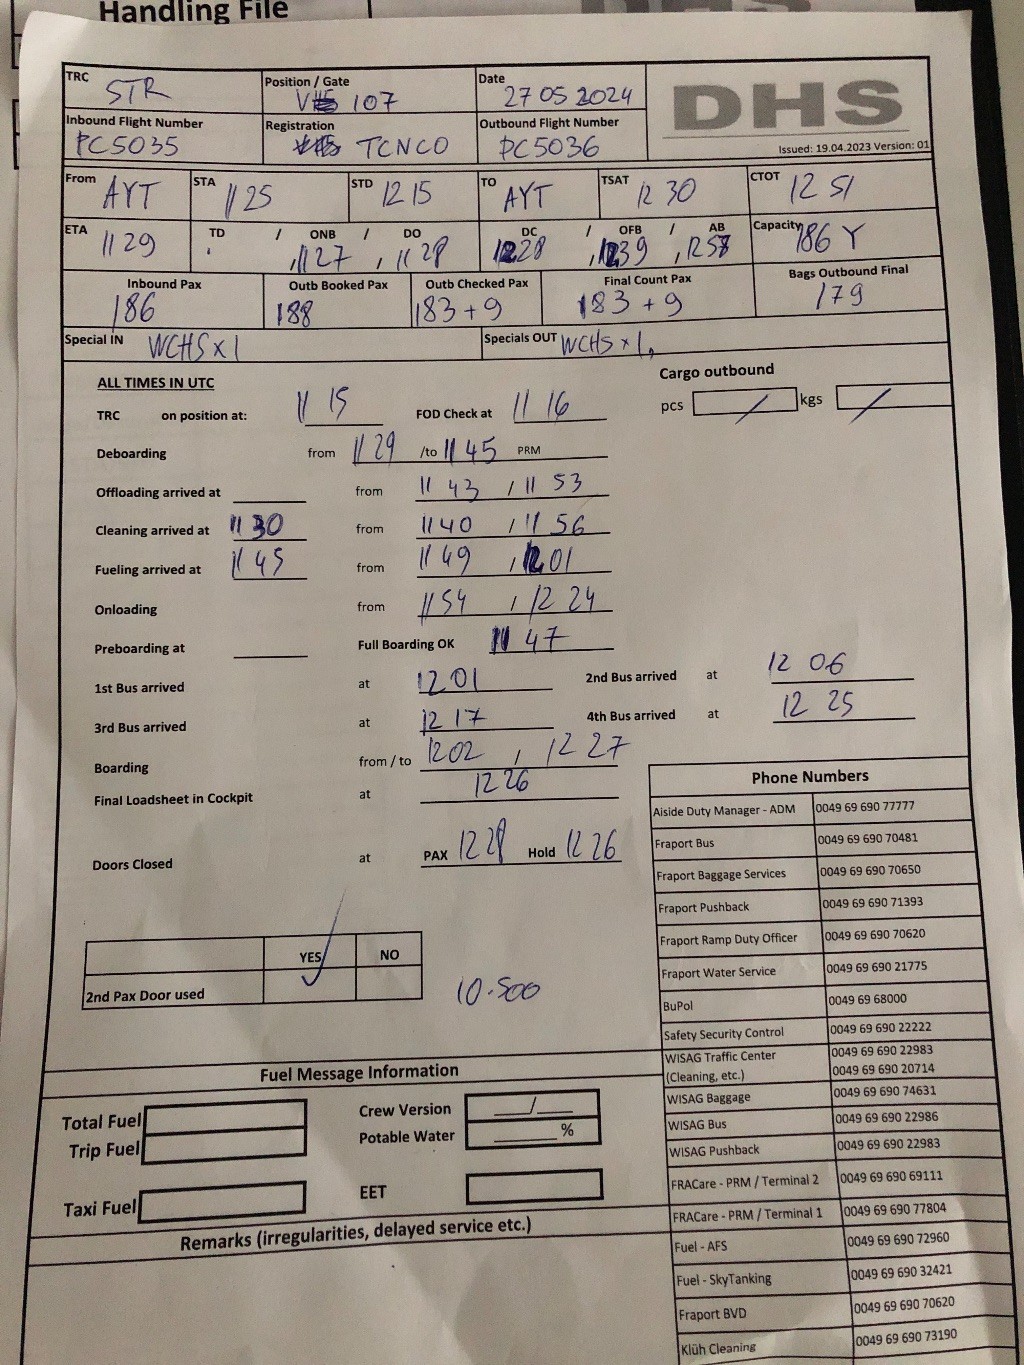 Handling File
TRC STR Position / Gate 107 Date 27 05 2024 DHS
Inbound Flight Number PC5035 Registration TCNCO Outbound Flight Number PC5036 Issued: 19.04.2023 Version: 01
From AYT STA 1125 STD 1215 TO AYT TSAT 12 30 CTOT 12 51
ETA 1129 TD / ONB / DO , 1127 , 1128 DC / OFB / AB 1228 , 1239 , 1258 Capacity 186 Y
Inbound Pax 186 Outb Booked Pax 188 Outb Checked Pax 183+9 Final Count Pax 183+9 Bags Outbound Final 179
Special IN WCHS x1 Specials OUT WCHS x1,
ALL TIMES IN UTC Cargo outbound
TRC on position at: 11 15 FOD Check at 11 16 pcs / kgs /
Deboarding from 1129 /to 1145 PRM
Offloading arrived at from 11 43 / 11 53
Cleaning arrived at 1130 from 1140 / 11 56
Fueling arrived at 1145 from 1149 , 1201
Onloading from 1154 / 12 24
Preboarding at Full Boarding OK 11 47
1st Bus arrived at 1201 2nd Bus arrived at 12 06
3rd Bus arrived at 12 17 4th Bus arrived at 12 25
Boarding from / to 1202 , 12 27
Final Loadsheet in Cockpit at 12 26
Doors Closed at PAX 1228 Hold 12 26
YES NO
2nd Pax Door used ✓
10.500
Phone Numbers
Aiside Duty Manager - ADM 0049 69 690 77777
Fraport Bus 0049 69 690 70481
Fraport Baggage Services 0049 69 690 70650
Fraport Pushback 0049 69 690 71393
Fraport Ramp Duty Officer 0049 69 690 70620
Fraport Water Service 0049 69 690 21775
BuPol 0049 69 68000
Safety Security Control 0049 69 690 22222
WISAG Traffic Center 0049 69 690 22983
(Cleaning, etc.) 0049 69 690 20714
WISAG Baggage 0049 69 690 74631
WISAG Bus 0049 69 690 22986
WISAG Pushback 0049 69 690 22983
FRACare - PRM / Terminal 2 0049 69 690 69111
FRACare - PRM / Terminal 1 0049 69 690 77804
Fuel - AFS 0049 69 690 72960
Fuel - SkyTanking 0049 69 690 32421
Fraport BVD 0049 69 690 70620
Klüh Cleaning 0049 69 690 73190
Fuel Message Information
Total Fuel Crew Version /
Trip Fuel Potable Water %
Taxi Fuel EET
Remarks (irregularities, delayed service etc.)